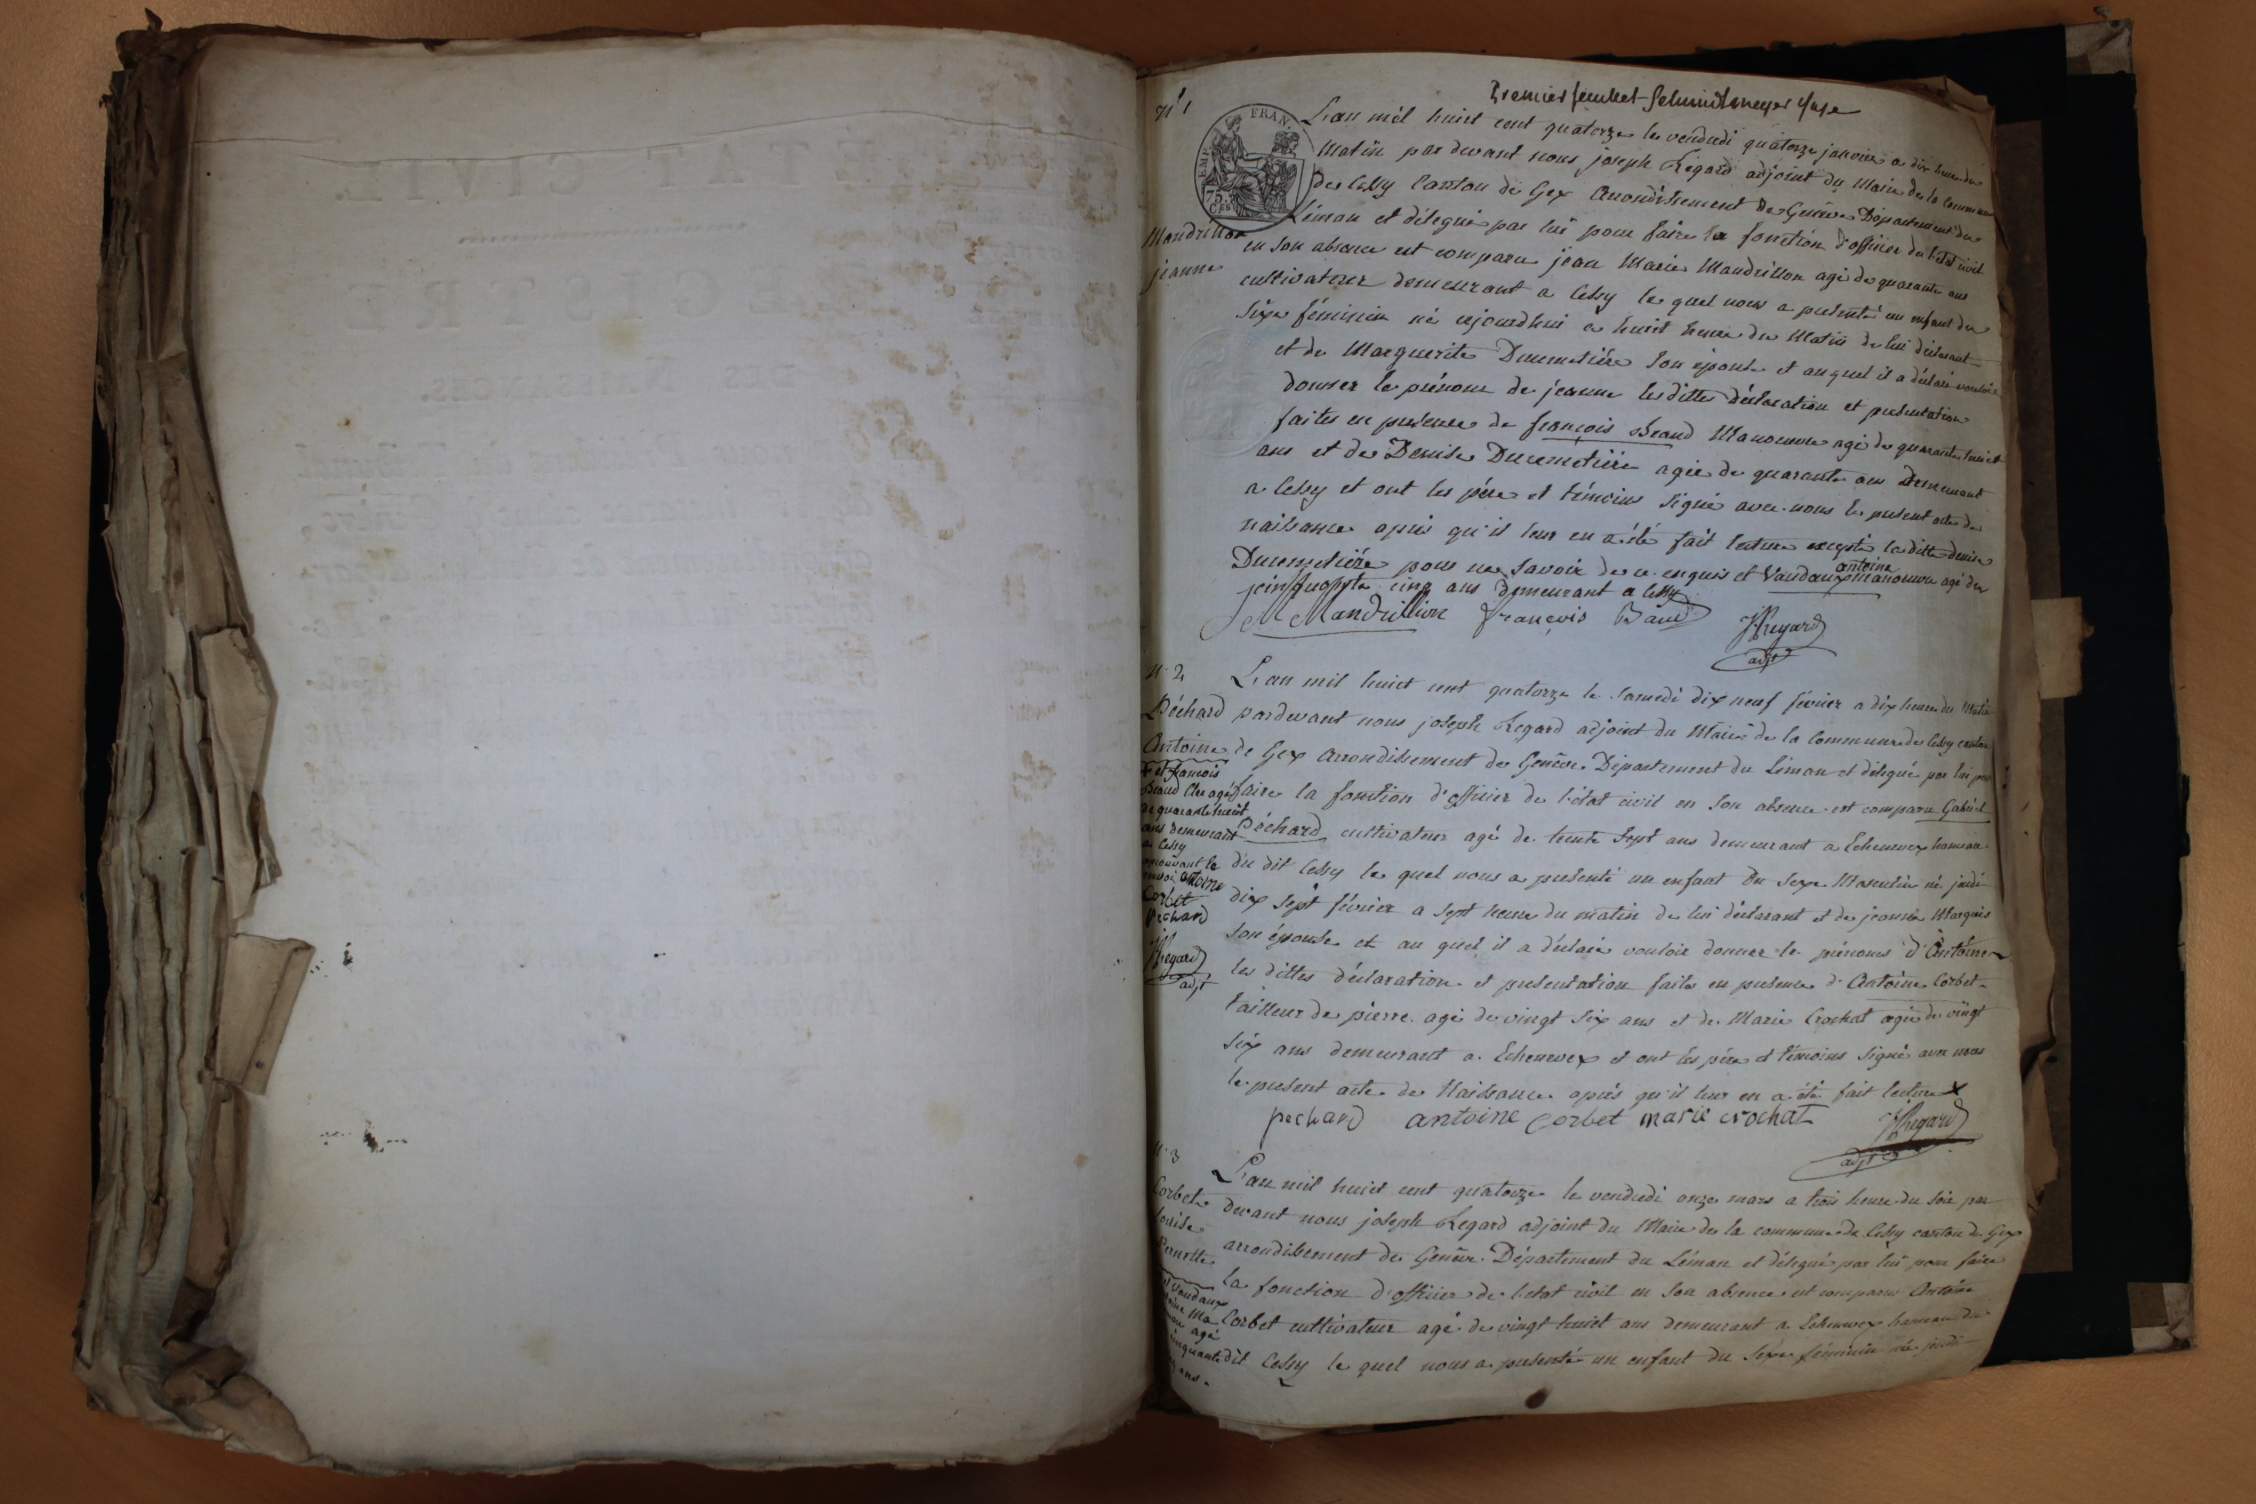 Premier feuillet Schmidtmeyer Juge
N.° 1
L'an mil huict cent quatorze le vendredi quatorze janvier a dix heure du
matin par devant nous joseph Regard adjoint du Maire de la Commune
de Cessy Canton de Gex Arrondissement de Genève Département du
Léman et délegué par lui pour faire la fonction d'officier de l'état civil
Mandrillon
jeanne
en son absence est comparu jean Marie Mandrillon agé de quarante ans
cultivateur demeurant a Cessy le quel nous a presenté un enfant du
sexe féminin né cejourdhui a huit heure du Matin de lui déclarant
et de Marguerite Ducimetière son épouse et auquel il a déclaré vouloir
donner le prénom de jeanne les dittes déclaration et presentation
faites en presence de françois Beaud Manoeuvre agé de quarante huict
ans et de Denise Ducimetière agée de quarante ans Demeurant
a Cessy et ont les père et témoins signé avec nous le present acte de
naissance après qu'il leur en a été fait lecture excepté la ditte denise
Ducimetière pour ne savoir de ce enquis et Vaudaux antoine manoeuvre agé de
cinquante cinq ans demeurant a Cessy
JM Mandrillion françois Baud JRegard
adjt
N.° 2
L'an mil huict cent quatorze le samedi dix neuf février a dix heure du Matin
Péchard
Antoine
pardevant nous joseph Regard adjoint du Maire de la Commune de Cessy canton
de Gex Arrondissement de Genève Département du Léman et délegué par lui pour
faire la fonction d'officier de l'état civil en son absence est comparu Gabriel
Péchard cultivateur agé de trente sept ans demeurant a Echenevex hameau
du dit Cessy le quel nous a presenté un enfant du sexe Masculin né jeudi
dix sept février a sept heure du matin de lui déclarant et de jeanne Marquis
son épouse et au quel il a déclaré vouloir donner le prénoms d'Antoine
les dittes déclaration et presentation faites en presence d'Antoine Corbet
tailleur de pierre agé de vingt six ans et de Marie Crochat agée de vingt
six ans demeurant a Echenevex et ont les père et témoins signé avec nous
le present acte de Naissance après qu'il leur en a été fait lecture X
X et françois
Beaud agé
de quarante huict
ans demeurant
a Cessy
aprouvant le
renvoi antoine
Corbet
Pechard
JRegard
adjt
pechard antoine corbet marie crochat JRegard
adjt
N.° 3
L'an mil huict cent quatorze le vendredi onze mars a trois heure du soir par
Corbet
Louise
Pernette
devant nous joseph Regard adjoint du Maire de la commune de Cessy canton de Gex
arrondissement de Genève Département du Léman et délegué par lui pour faire
la fonction d'officier de l'état civil en son absence est comparu Antoine
Corbet cultivateur agé de vingt huict ans demeurant a Echenevex hameau du
dit Cessy le quel nous a presenté un enfant du sexe féminin né jeudi
et Vaudaux
agé
cinquante
ans